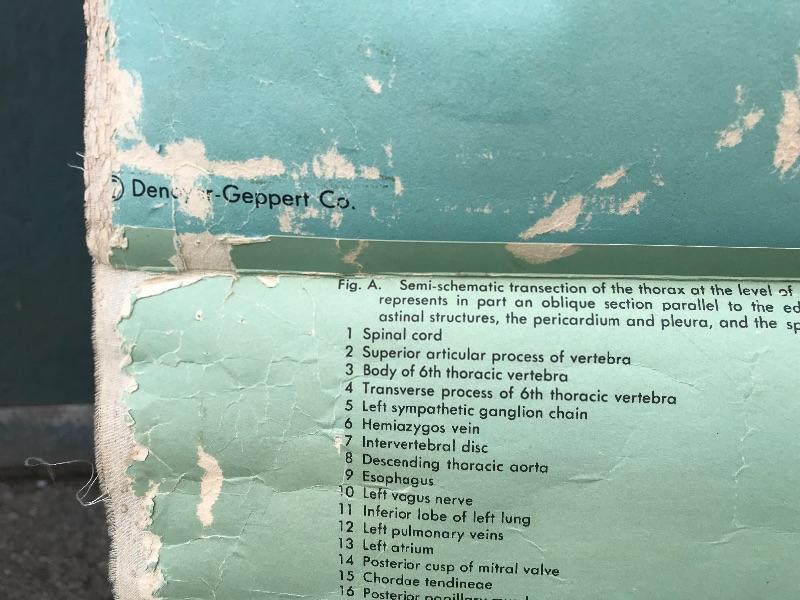 Denoyer-Geppert Co.
Fig. A. Semi-schematic transection of the thorax at the level of
represents in part an oblique section parallel to the
astinal structures, the pericardium and pleura, and the
1 Spinal cord
2 Superior articular process of vertebra
3 Body of 6th thoracic vertebra
4 Transverse process of 6th thoracic vertebra
5 Left sympathetic ganglion chain
6 Hemiazygos vein
7 Intervertebral disc
8 Descending thoracic aorta
9 Esophagus
10 Left vagus nerve
11 Inferior lobe of left lung
12 Left pulmonary veins
13 Left atrium
14 Posterior cusp of mitral valve
15 Chordae tendineae
16 Posterior papillary